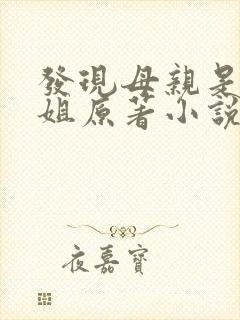 發現母親是
姐原著小說
夜嘉寶